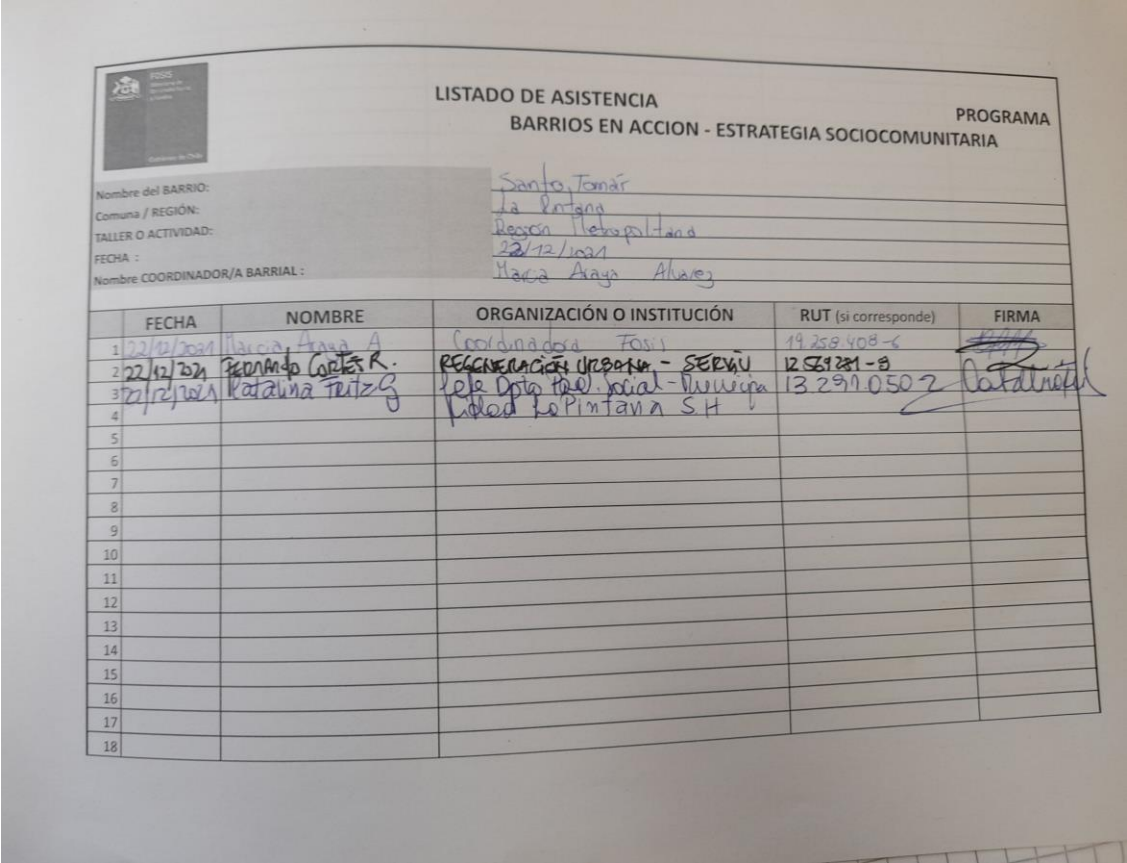 FOSIS
Gobierno de Chile
LISTADO DE ASISTENCIA
PROGRAMA
BARRIOS EN ACCION - ESTRATEGIA SOCIOCOMUNITARIA
Nombre del BARRIO: Santo Tomár
Comuna / REGIÓN: La Pintana
TALLER O ACTIVIDAD: Región Metropolitana
FECHA : 22/12/2021
Nombre COORDINADOR/A BARRIAL : Marcia Araya Alvarez
FECHA NOMBRE ORGANIZACIÓN O INSTITUCIÓN RUT (si corresponde) FIRMA
1 22/12/2021 Marcia Araya A Coordinadora Fosis 19.258.408-6
2 22/12/2021 FERNANDO CORTÉS R. REGENERACIÓN URBANA - SERVIU 12569281-9
3 22/12/2021 Katalina Fritz G Jefe Dpto Hab. Social - Municipa 13.291.050 2
4 lidad La Pintana S H
5
6
7
8
9
10
11
12
13
14
15
16
17
18